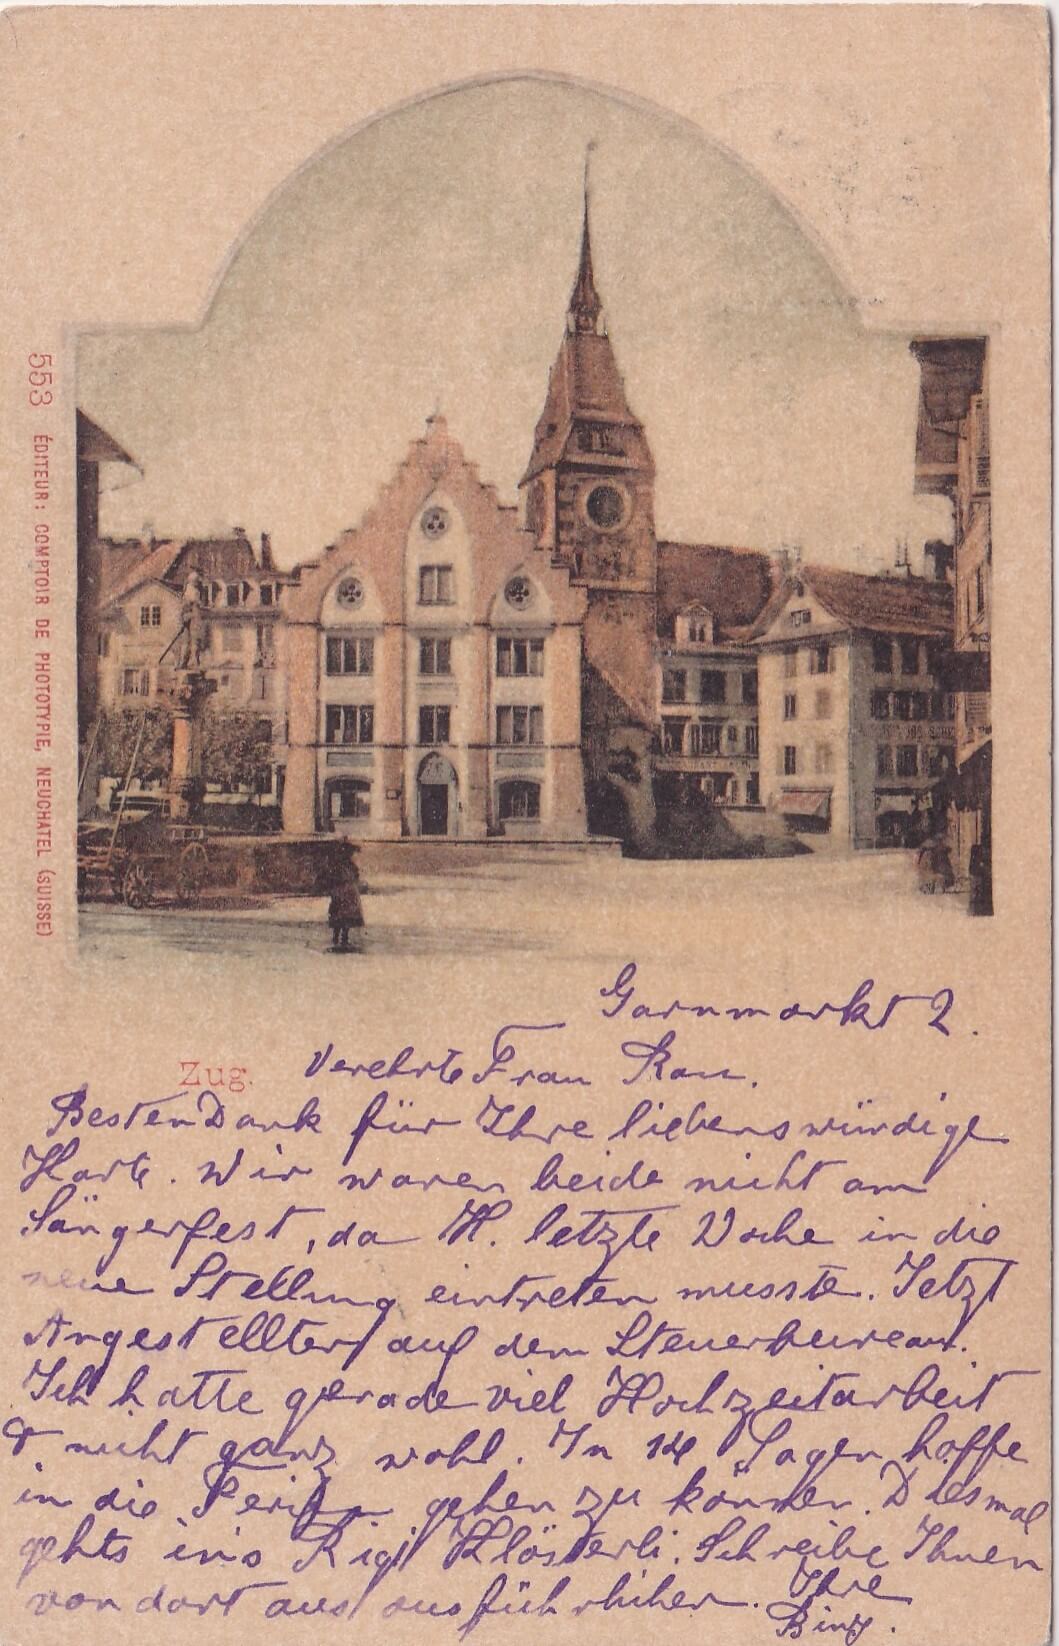 553 ÉDITEUR: COMPTOIR DE PHOTOTYPIE, NEUCHATEL (SUISSE)
Garnmarkt 2.
Zug.
Verehrte Frau Rau.
Besten Dank für Ihre liebenswürdige
Karte. Wir waren beide nicht am
Sängerfest, da H. letzte Woche in die
neue Stellung eintreten musste. Jetzt
Angestellter auf dem Steuerbureau.
Ich hatte gerade viel Hochzeitarbeit
& nicht ganz wohl. In 14 Tagen hoffe
in die Ferien gehen zu können. Diesmal
gehts ins Rigi Klösterli. Schreibe Ihnen
von dort aus ausführlicher. Ihre